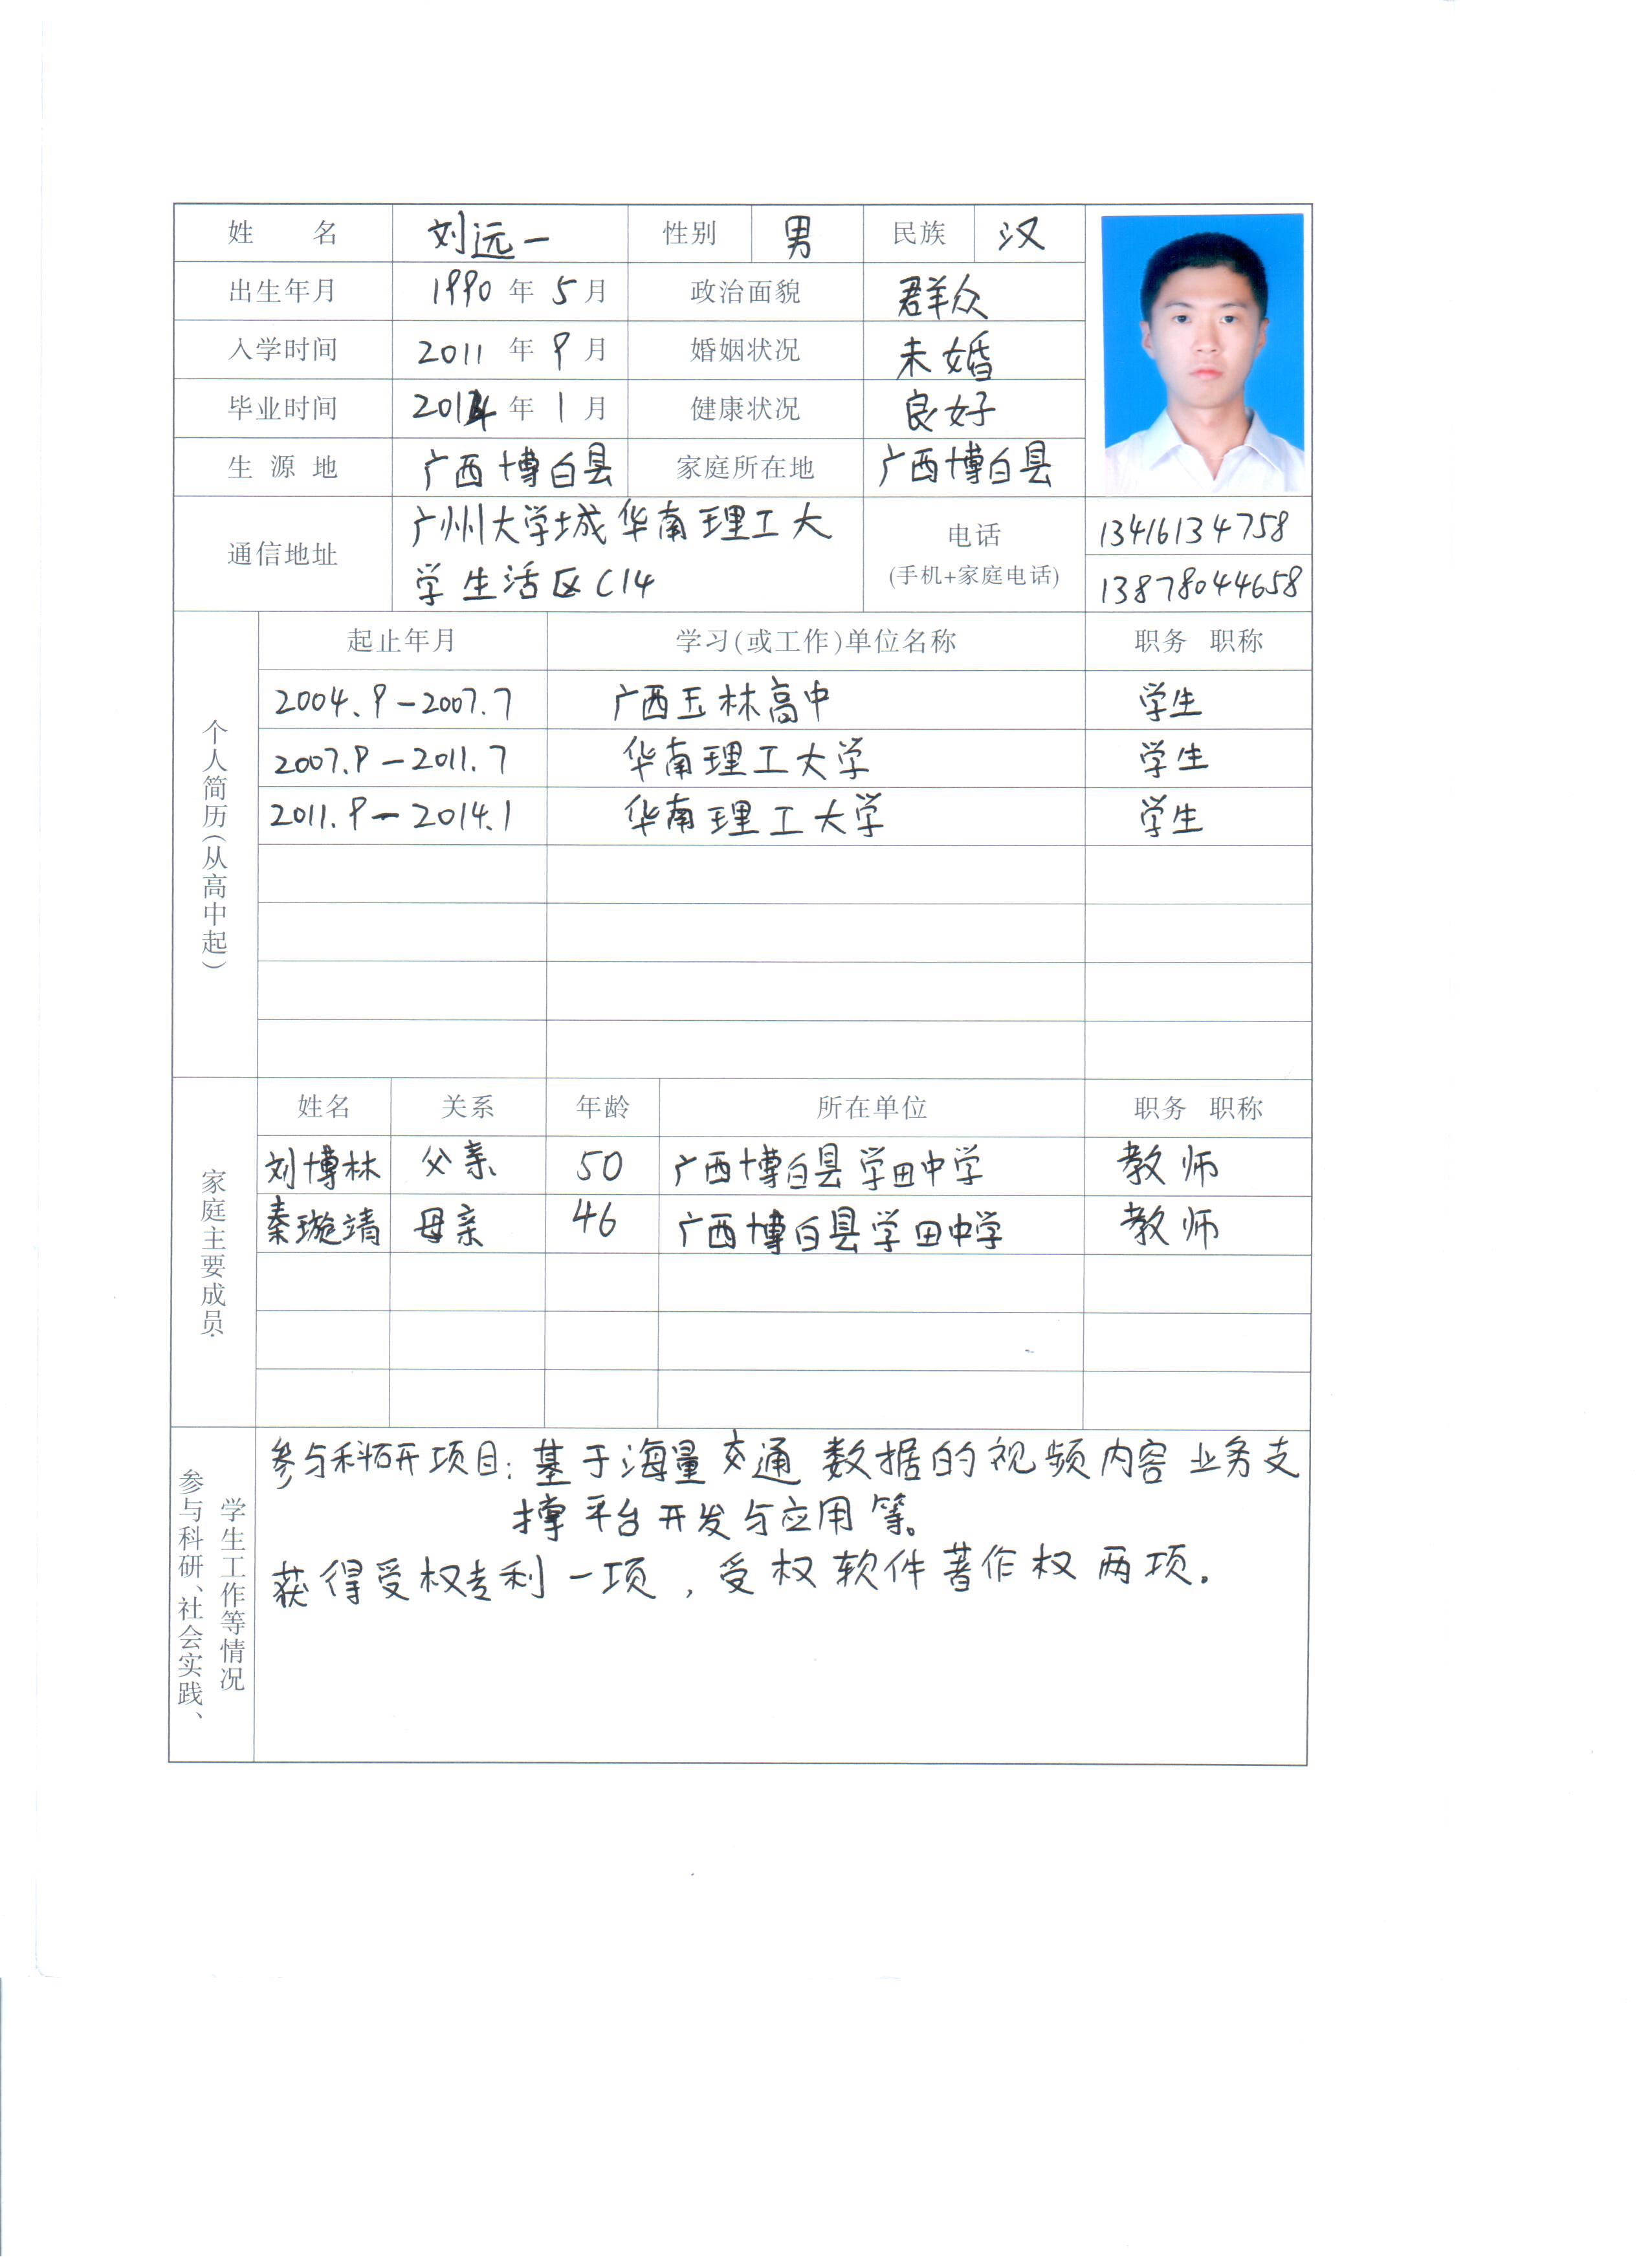 姓 名 刘远一 性别 男 民族 汉
出生年月 1990 年 5 月 政治面貌 群众
入学时间 2011 年 9 月 婚姻状况 未婚
毕业时间 2014 年 1 月 健康状况 良好
生 源 地 广西博白县 家庭所在地 广西博白县
通信地址 广州大学城华南理工大
学生活区C14
电话
(手机+家庭电话)
13416134758
13878044658
个人简历(从高中起)
起止年月 学习(或工作)单位名称 职务 职称
2004.9-2007.7 广西玉林高中 学生
2007.9-2011.7 华南理工大学 学生
2011.9-2014.1 华南理工大学 学生
家庭主要成员
姓名 关系 年龄 所在单位 职务 职称
刘博林 父亲 50 广西博白县学田中学 教师
秦璇靖 母亲 46 广西博白县学田中学 教师
参与科研、社会实践、
学生工作等情况
参与科研项目:基于海量交通数据的视频内容业务支
撑平台开发与应用等。
获得受权专利一项,受权软件著作权两项.